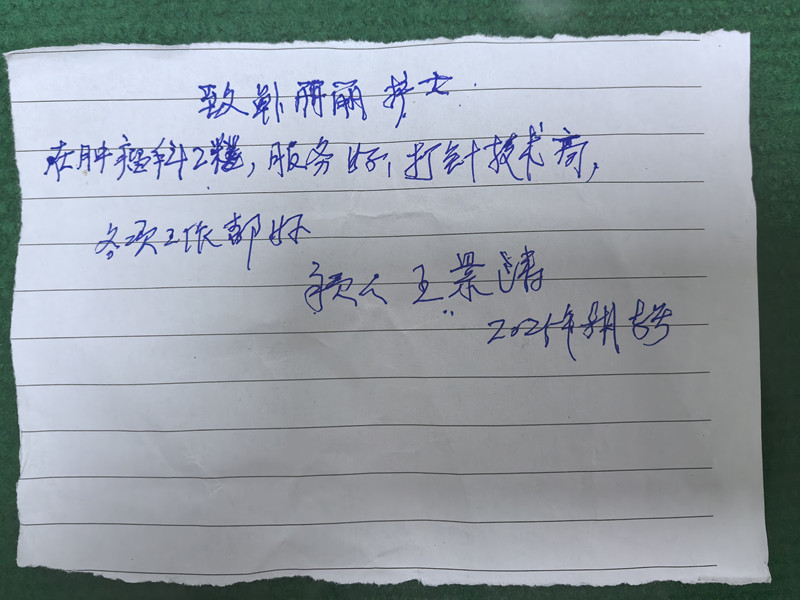 致 丽丽护士
在肿瘤科2楼,服务好,打针技术高,
各项工作都好
王景涛
2025年8月 号